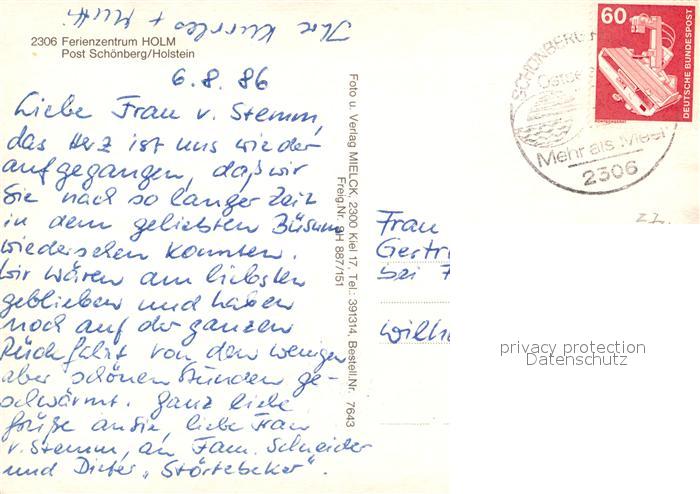 Ihre Kurzles + Mutti
2306 Ferienzentrum HOLM
Post Schönberg/Holstein
6.8.86
Liebe Frau v. Stemm,
das Herz ist uns wieder
aufgegangen, daß wir
Sie nach so langer Zeit
in dem geliebten Büsum
wiedersehen konnten.
Wir wären am liebsten
geblieben und haben
noch auf der ganzen
Rückfahrt von den wenigen
aber schönen Stunden ge-
schwärmt. Ganz liebe
Grüße an Sie, liebe Frau
v. Stemm, an Fam. Schneider
und Dieter „Störtebeker".
Foto u. Verlag MIELCK, 2300 Kiel 17, Tel.: 391314, Bestell.Nr. 7643
Freig.Nr. SH 887/151
60
DEUTSCHE BUNDESPOST
SCHÖNBERG
Ostsee
Mehr als Meer
2306
Frau
Gertr
bei
Wilh
privacy protection
Datenschutz